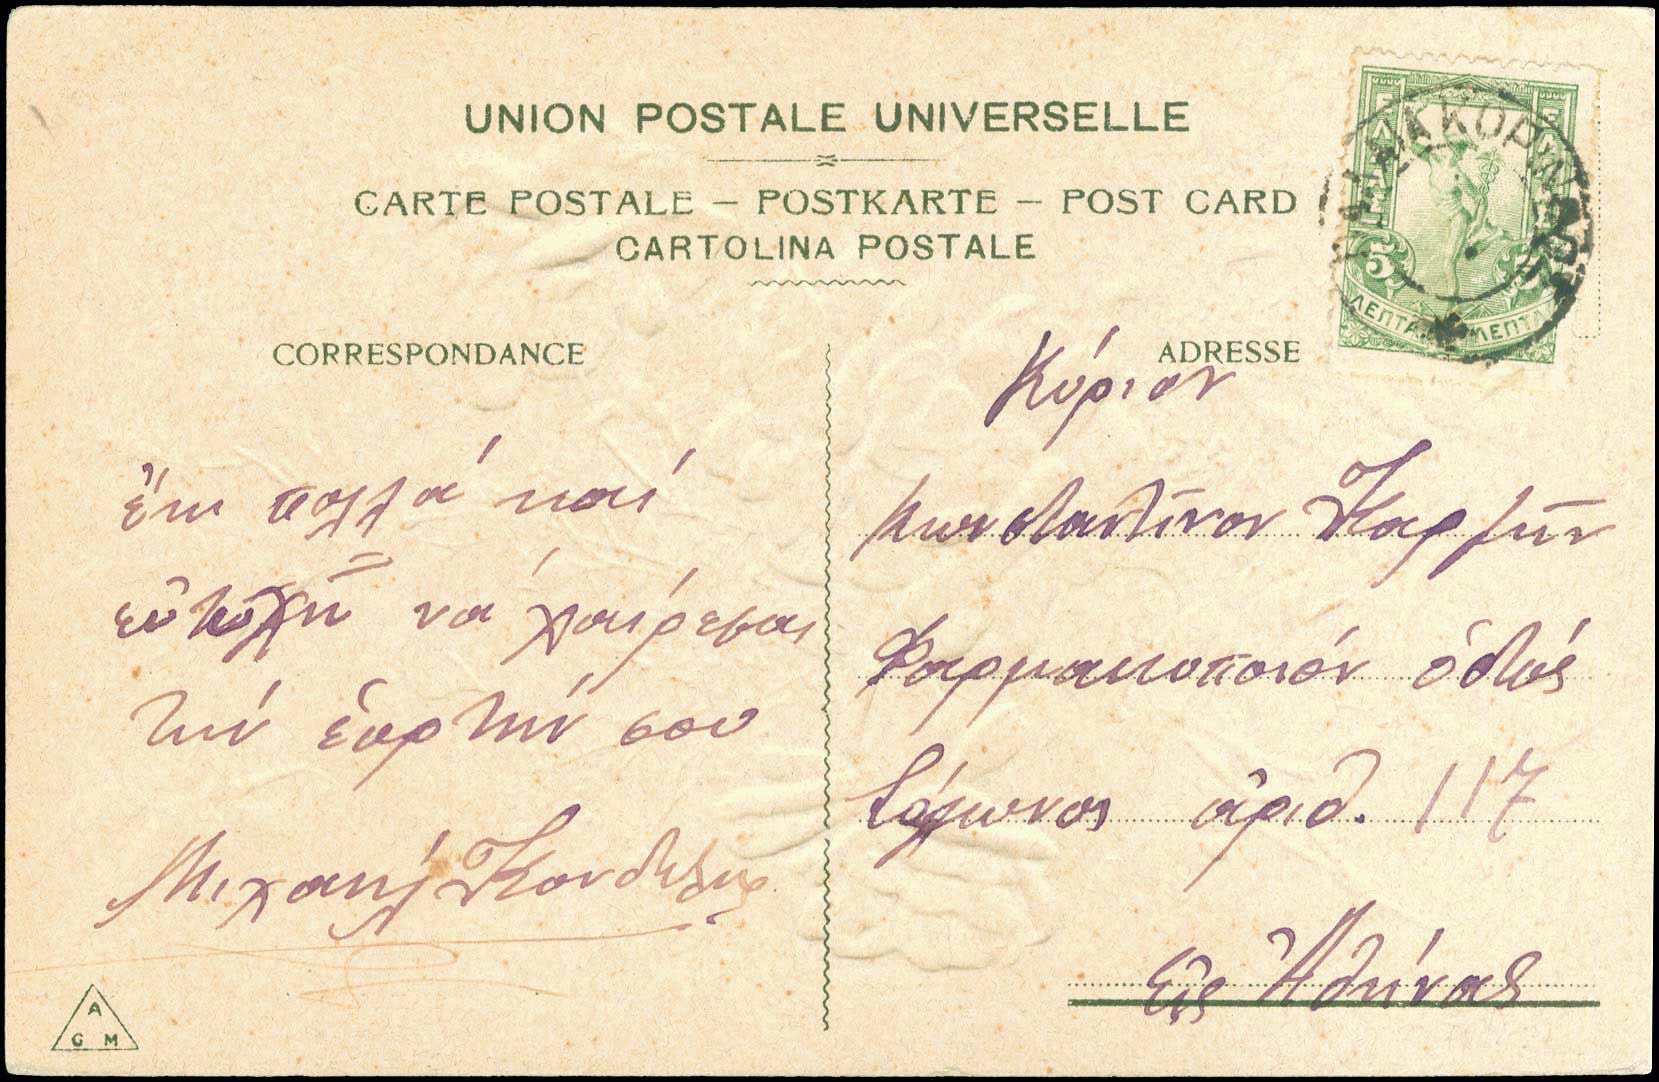 UNION POSTALE UNIVERSELLE
CARTE POSTALE – POSTKARTE – POST CARD
CARTOLINA POSTALE
ΕΛΛΑΣ
5
ΛΕΠΤΑ ΛΕΠΤΑ
CORRESPONDANCE
ἔτη πολλά καί
εὐτυχῆ νά χαίρεσαι
τήν ἑορτήν σου
Μιχαήλ
A
G M
ADRESSE
Κύριον
Κωνσταντῖνον
Φαρμακοποιόν ὁδός
Σόλωνος ἀριθ. 117
Εἰς Ἀθήνας